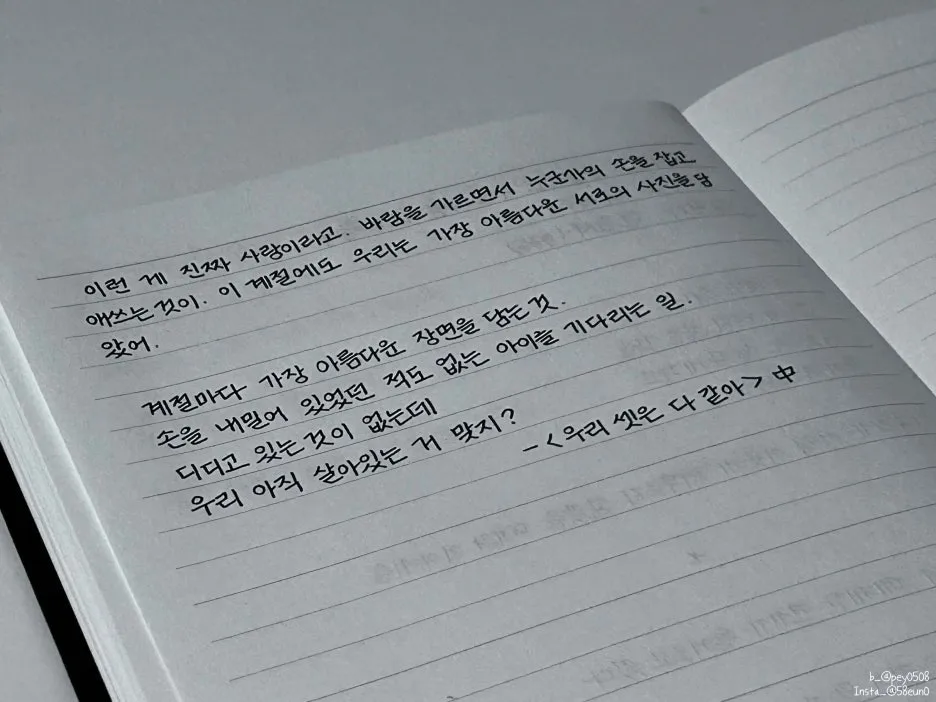 이런 게 진짜 사랑이라고. 바람을 가르면서 누군가의 손을 잡고
애쓰는 것이. 이 계절에도 우리는 가장 아름다운 서로의 사진을 담
았어.
계절마다 가장 아름다운 장면을 담는 것.
손을 내밀어 있었던 적도 없는 아이를 기다리는 일.
디디고 있는 것이 없는데
우리 아직 살아있는 거 맞지?
- <우리 셋은 다 같아> 中
b_@pey0508
Insta_@58eun0